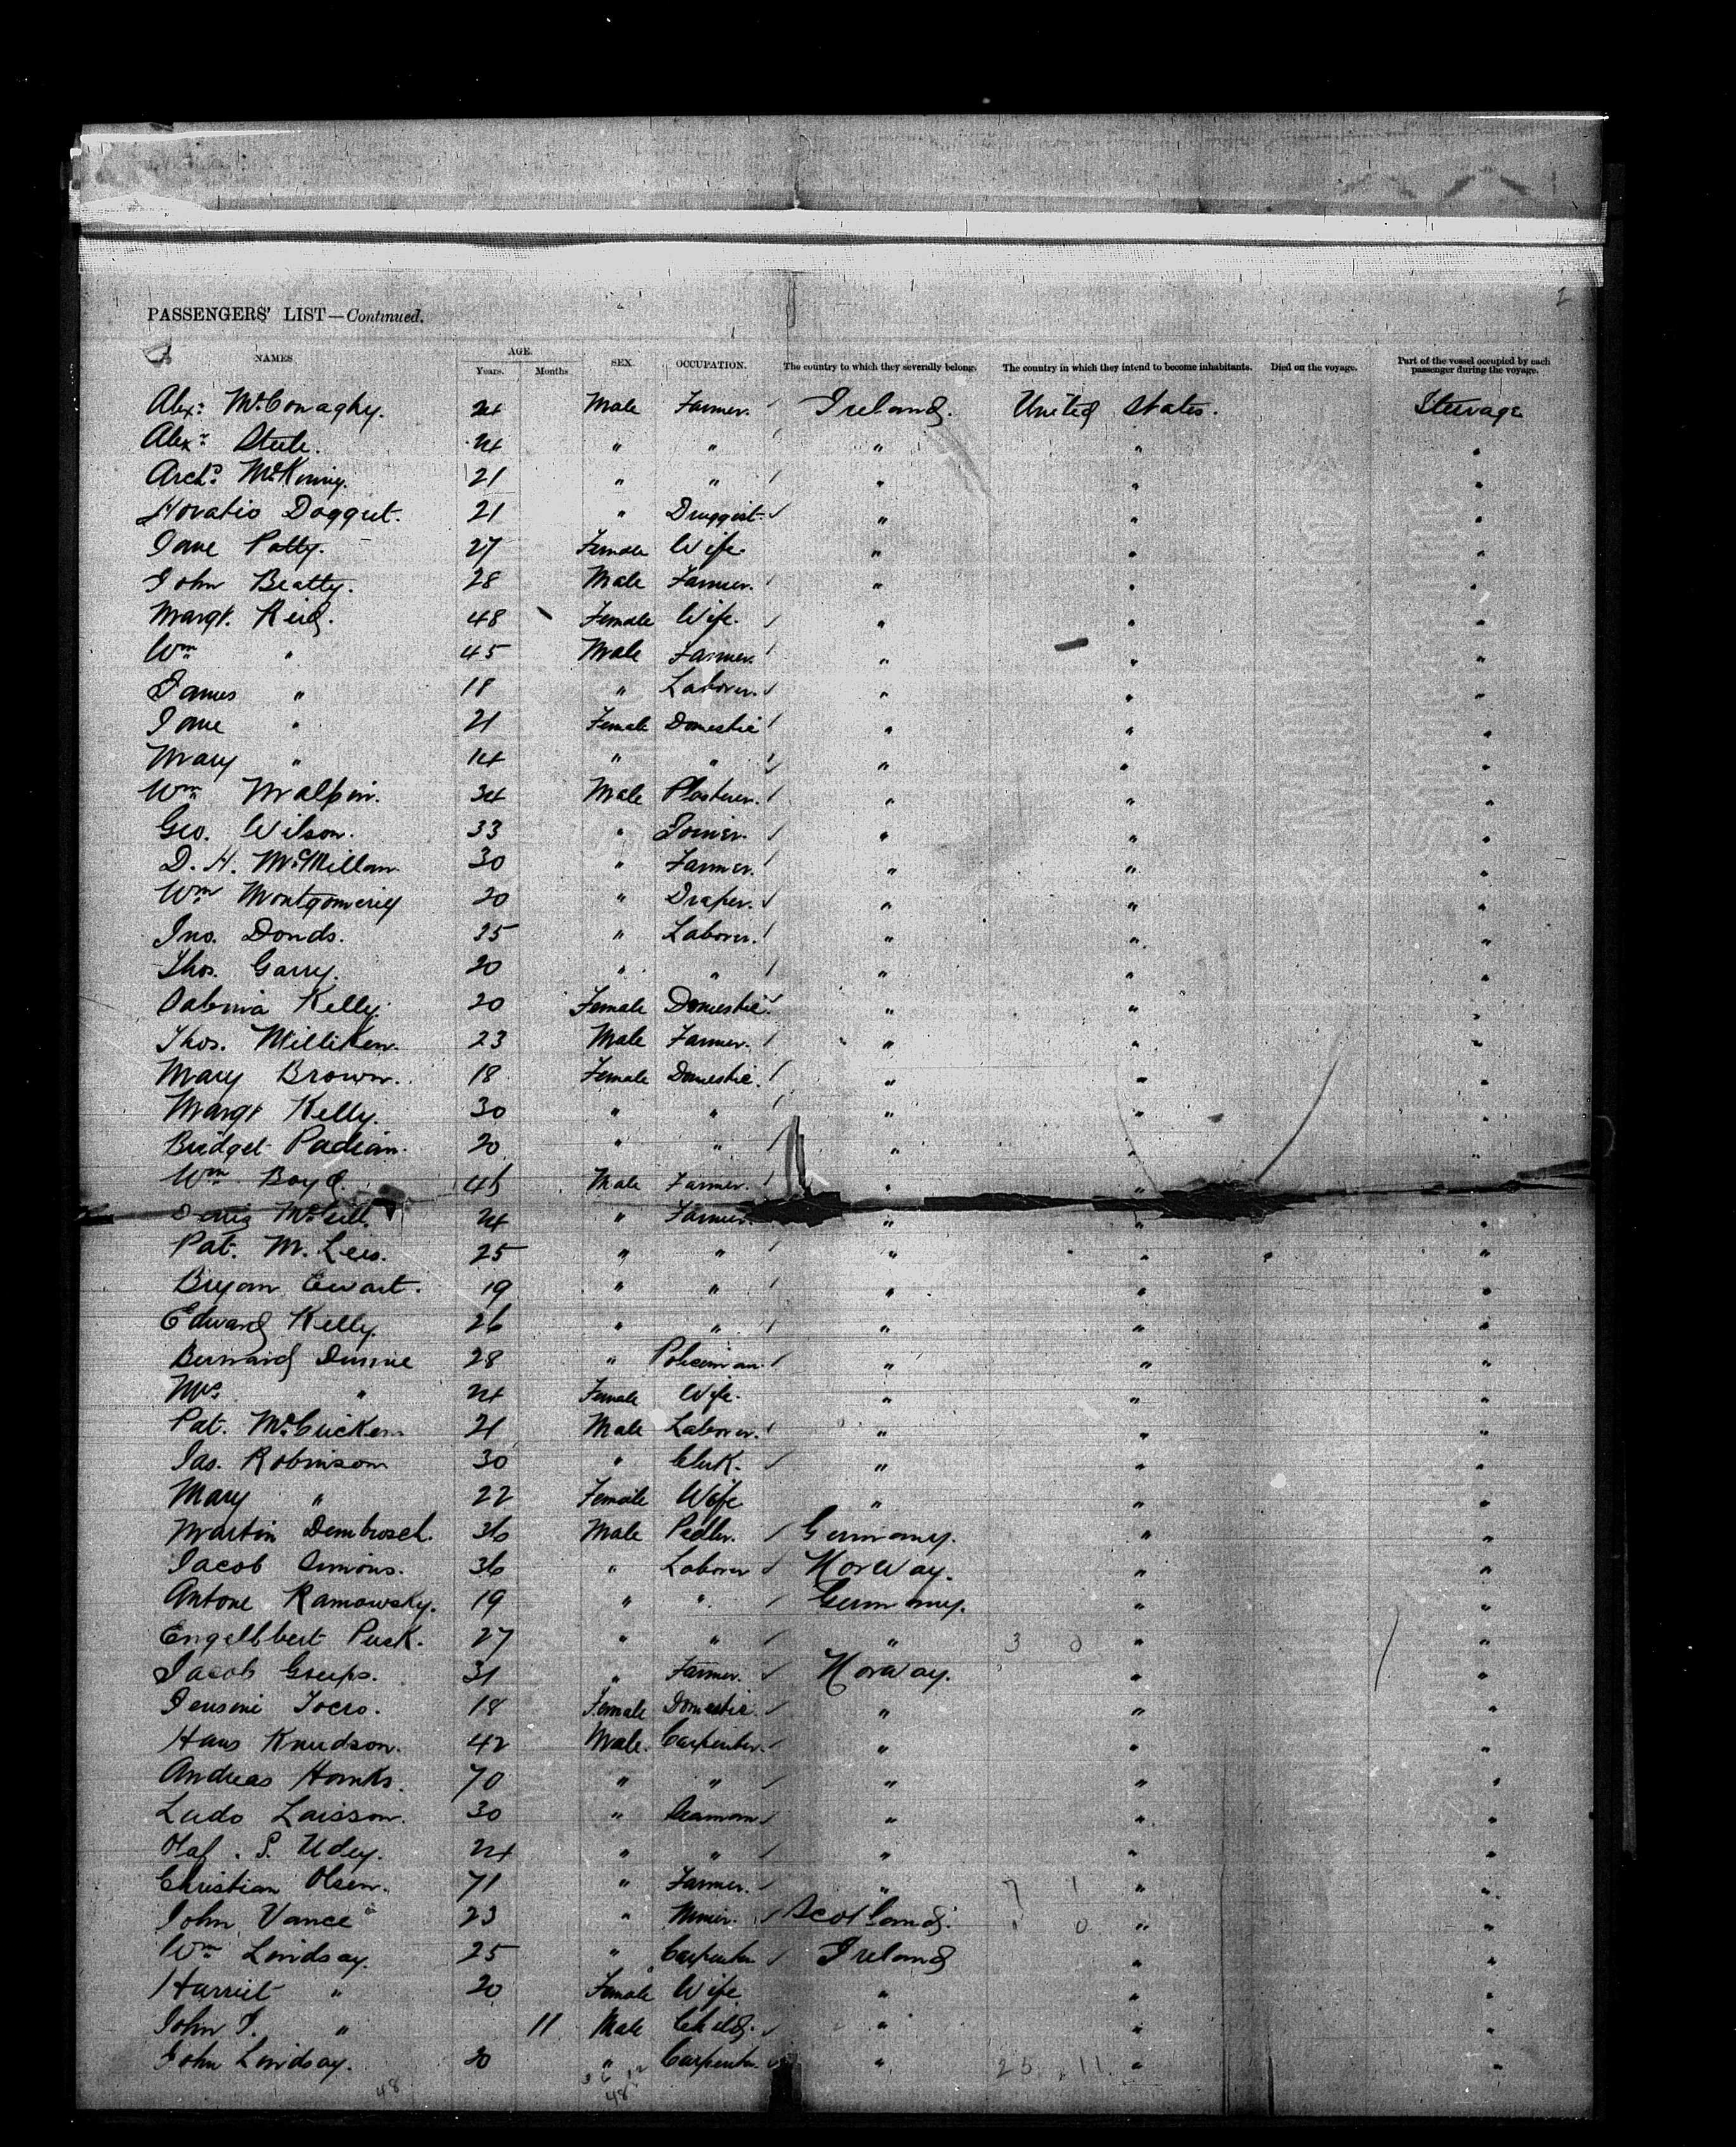 PASSENGERS' LIST—Continued.
NAMES. AGE. Years. Months. SEX. OCCUPATION. The country to which they severally belong. The country in which they intend to become inhabitants. Died on the voyage. Part of the vessel occupied by each passenger during the voyage.
Alexr. McConaghy. 24 Male Farmer. Ireland. United States. Steerage
Alexr. Steele. 24 " " " " "
Archd. McKinny. 21 " " " " "
Horatio Doggut. 21 " Druggist. " " "
Jane Patty. 27 Female Wife. " " "
John Beatty. 28 Male Farmer. " " "
Margt. Reid. 48 Female Wife. " " "
Wm " 45 Male Farmer. " " "
James " 18 " Laborer. " " "
Jane " 21 Female Domestic " " "
Mary " 14 " " " " "
Wm Malpin. 34 Male Plasterer. " " "
Geo. Wilson. 33 " Joiner. " " "
D. H. McMillan. 30 " Farmer. " " "
Wm Montgomerey 20 " Draper. " " "
Jno. Donds. 25 " Laborer. " " "
Thos. Garry. 20 " " " " "
Sabina Kelly. 20 Female Domestic. " " "
Thos. Milliken. 23 Male Farmer. " " "
Mary Brown. 18 Female Domestic. " " "
Margt Kelly. 30 " " " " "
Bridget Padian. 20 " " " " "
Wm Boyd. 45 Male Farmer. " " "
24 " Farmer. " " "
Pat. M. Lees. 25 " " " " "
Bryan Ewart. 19 " " " " "
Edward Kelly. 26 " " " " "
Bernard Dunne 28 " Policeman. " " "
Mrs. " 24 Female Wife. " " "
Pat. McGucken 21 Male Laborer. " " "
Jas. Robinson 30 " Clerk. " " "
Mary " 22 Female Wife " " "
Martin Dembrosch. 36 Male Pedler. Germany. " "
Jacob Simons. 36 " Laborer Norway. " "
Antone Ramowsky. 19 " " Germany. " "
Engelbbert Pusk. 27 " " " 3 0 " "
Jacob Greeps. 31 " Farmer. Norway. " "
Jensine Tocro. 18 Female Domestic. " " "
Hans Knudson. 42 Male. Carpenter. " " "
Andreas Hanks. 70 " " " " "
Ludo Laisson. 30 " Seaman " " "
Olaf. S. Udey. 24 " " " " "
Christian Olsen. 71 " Farmer. " 7 1 " "
John Vance 23 " Miner. Scotland. 1 0 " "
Wm Lindsay. 25 " Carpenter Ireland " "
Harriet " 20 Female Wife " " "
John T. " 11 Male Child. " " "
John Lindsay. 20 " Carpenter. " 25 11 " "
48 36 12
48